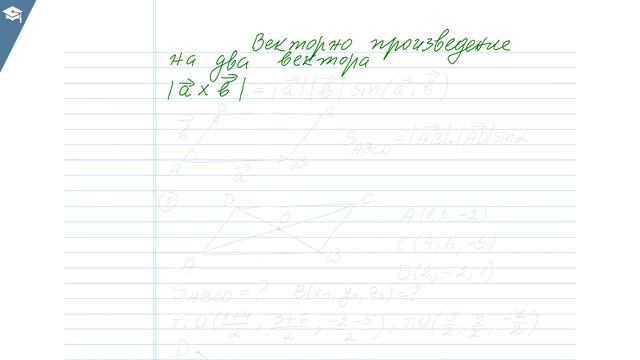 Векторно произведение
на два вектора
|a⃗ × b⃗| = |a⃗||b⃗| sin(a⃗, b⃗)
D C
b⃗
S_ABCD = |AB⃗|.|AD⃗| sinα
A a⃗ B
① D C
O A(1, 3, -2)
C(4, 6, -5)
A B D(2, -2, 1)
S_ABCD = ? B(x₀, y₀, z₀) = ?
т. O(1+4/2, 3+6/2, -2-5/2), т. O(5/2, 9/2, -7/2)
D